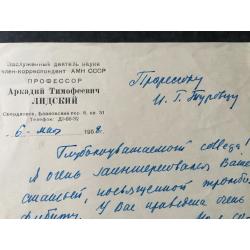 Заслуженный деятель науки
член-корреспондент АМН СССР
ПРОФЕССОР
Аркадий Тимофеевич
ЛИДСКИЙ
Свердловск, Банковский пер. 8, кв. 31
Телефон: Д3-68-32
Профессору
И. Г. Туровцу
6. мая 1958.
Глубокоуважаемый
Я очень заинтересовался Вашей
статьей, посвященной тромбо
У Вас приведена очень